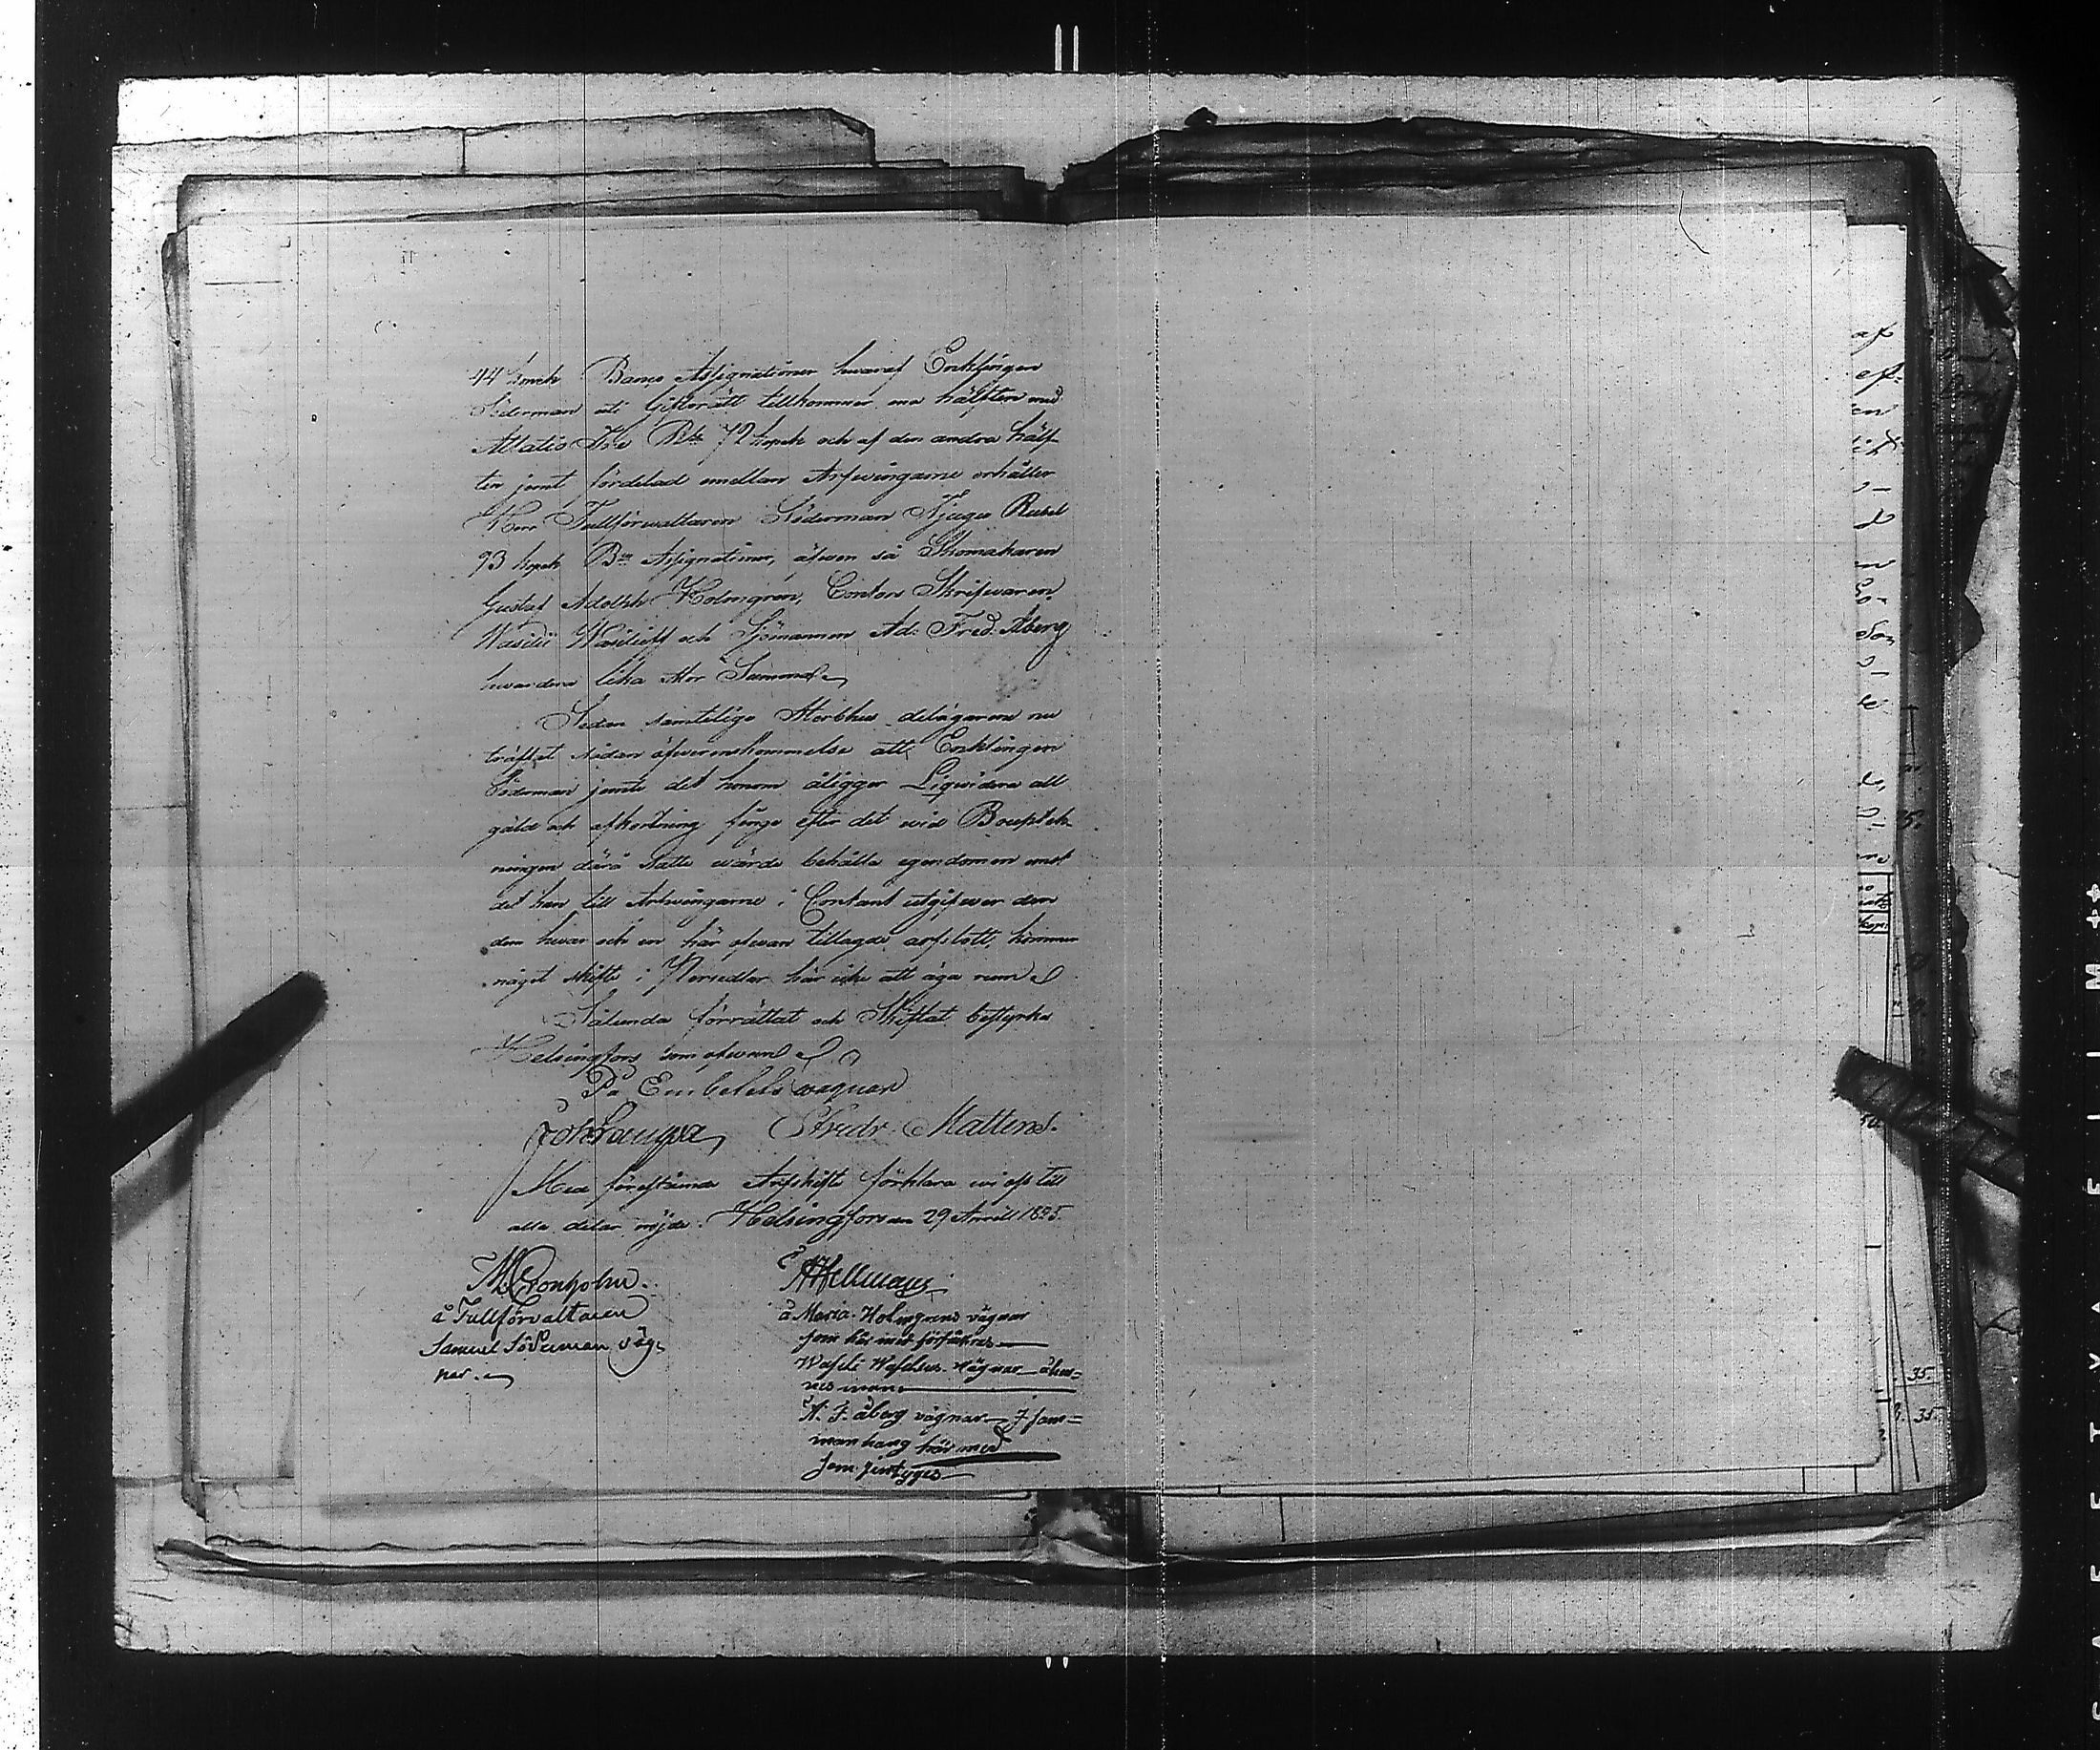 44 kopek Banco Assignationer hwaraf Enklingen
Söderman uti Giftorätt tillkommer ena hälften med
72 kopek och af den andra hälf-
ten jemt fördelad emellan Arfwingarne erhåller
Herr Tullförwaltaren Söderman Tjugu Rubel
93 kopek Bco Assignationer, äfwen så Skomakaren
Gustaf Adolph Holmgren, Contors Skrifwaren
Wasilii Wasilieff och Sjömannen Ad: Fred. Åberg
hwardera lika stor Summa
Sedan samtelige Sterbhus delägarene nu
träffat sådan öfwerenskommelse att Enklingen
Söderman jemte det honom åligger Liqwidera all
gäld och afkortning finge efter det wid Boupptek-
ningen därå satte wärde behålla egendomen emot
det han till Arfwingarne i Contant utgifwer den
dem hwar och en här ofwan tillagde arfslott, kommer
något skifte i Persedlar här icke att äga rum
Sålunda förrättat och Skiftat bestyrka
Helsingfors som ofwan
På Embetets wägnar
Fredr. Mattens.
Med föreståénde Arfskifte förklara wi oss till
alla delar nöjde. Helsingfors den 29 April 1835.
M. Cronholm.
å Tullförvaltaren
Samuel Södermans väg-
nar.
A Hellmans
å Maria Holmgrens vägnar
som här med försäkras
Wasili Wasilius. Wägnar
A. F. Åberg vägnar I sam-
manhang här med
som intyges
35.
35.